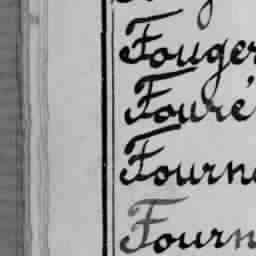 Fouger
Fouré
Fourn
Fourn